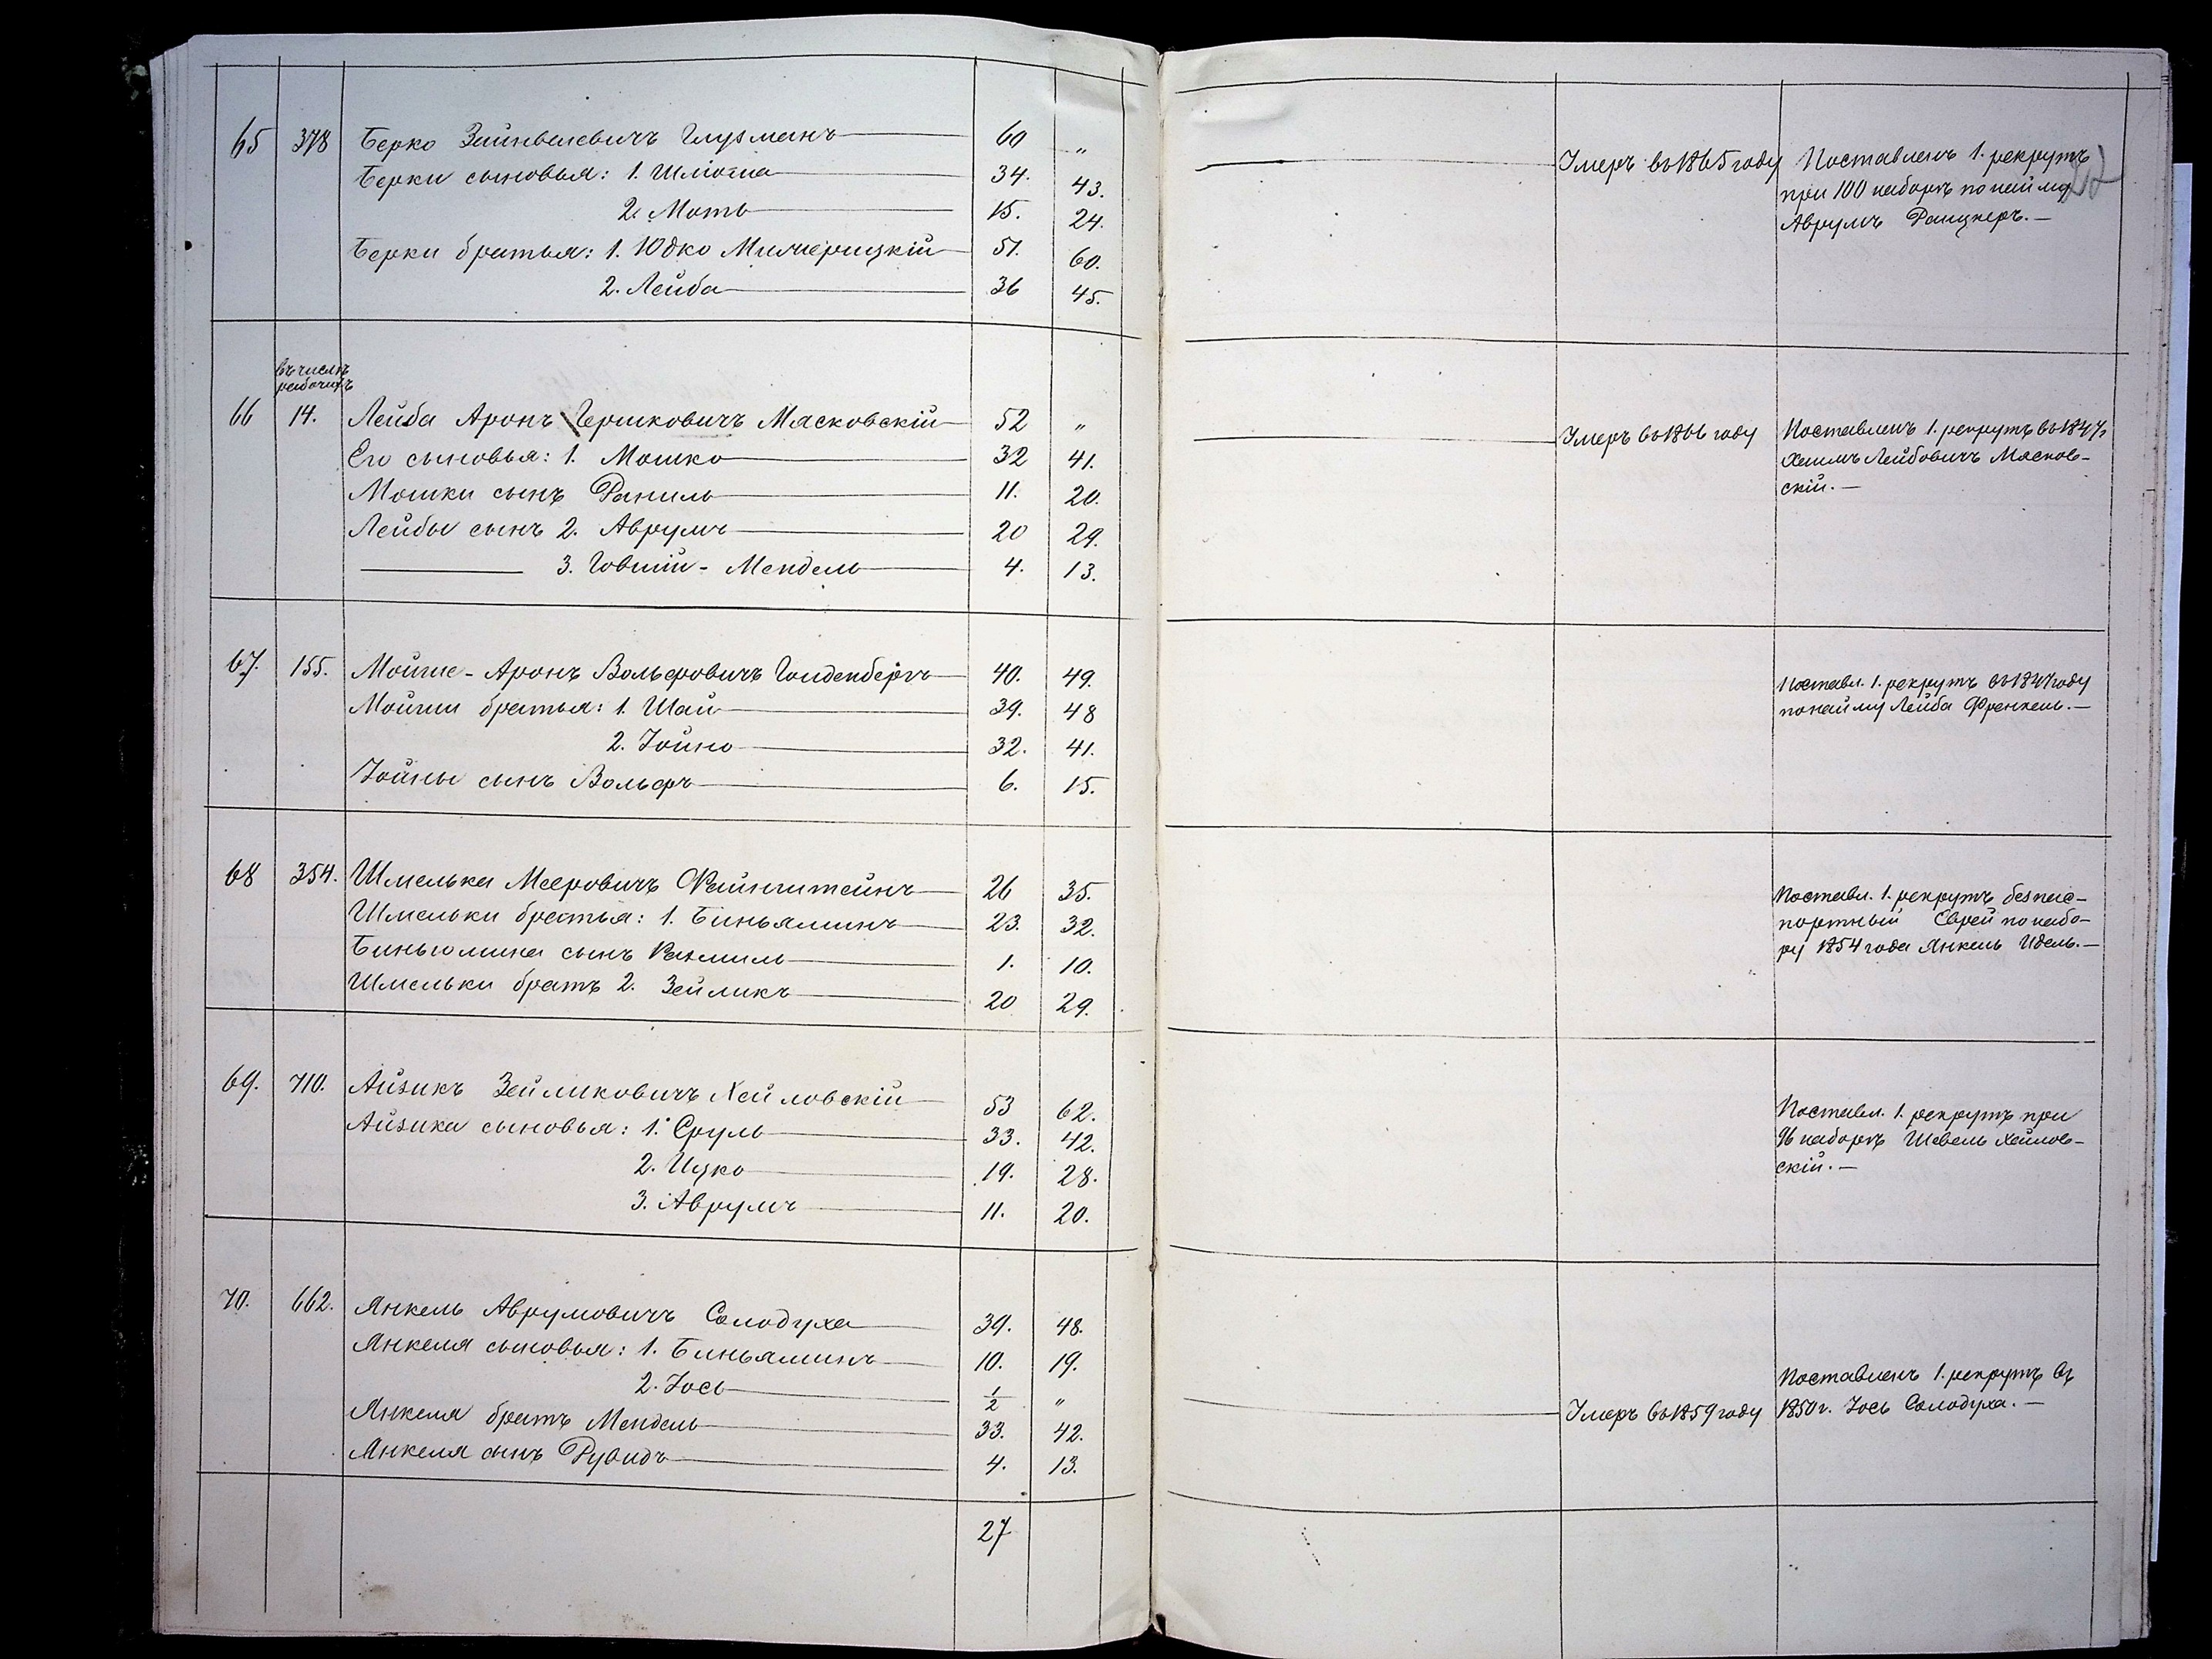 65 378 Берко Зейнвелевичъ Глузманъ 60 "
Берки сыновья: 1. Шліома 34. 43.
2. Моть 15. 24.
Берки братья: 1. Юдко 51. 60.
2. Лейба 36 45.
Умеръ въ 1865 году
Поставленъ 1. рекрутъ
при 100 наборѣ по найму
Аврумъ
въ числѣ
рабочихъ
66 14. Лейба Аронъ Гершковичъ Мясковскій 52 "
Его сыновья: 1. Мошко 32 41.
Мошки сынъ Фаниль 11. 20.
Лейбы сынъ 2. Аврумъ 20 29.
3. Говшій-Мендель 4. 13.
Умеръ въ 1866 году
Поставленъ 1. рекрутъ въ 1847г
Хаимъ Лейбовичъ Мясков-
скій.—
67. 155. Мойше-Аронъ Вольфовичъ Голденбергъ 40. 49.
Мойши братья: 1. Шай 39. 48
2. Іойно 32. 41.
Іойны сынъ Вольфъ 6. 15.
Поставл. 1. рекрутъ въ 1847 году
по найму Лейба Френкель.—
68 354. Шмелька Мееровичъ Файнштейнъ 26 35.
Шмельки братья: 1. Биньяминъ 23. 32.
Биньомина сынъ 1. 10.
Шмельки братъ 2. Зейликъ 20 29.
Поставл. 1. рекрутъ безпас-
портный Еврей по набо-
ру 1854 года Янкель Идель.—
69. 710. Айзикъ Зейликовичъ Хейловскій 53 62.
Айзика сыновья: 1. Сруль 33. 42.
2. Ицко 19. 28.
3. Аврумъ 11. 20.
Поставл. 1. рекрутъ при
96 наборѣ Шевель Хейлов-
скій.—
70. 662. Янкель Аврумовичъ Солодуха 39. 48.
Янкеля сыновья: 1. Биньяминъ 10. 19.
2. Іось 1/2 "
Янкеля братъ Мендель 33. 42.
Янкеля сынъ 4. 13.
Умеръ въ 1859 году
Поставленъ 1. рекрутъ въ
1850г. Іось Солодуха.—
27